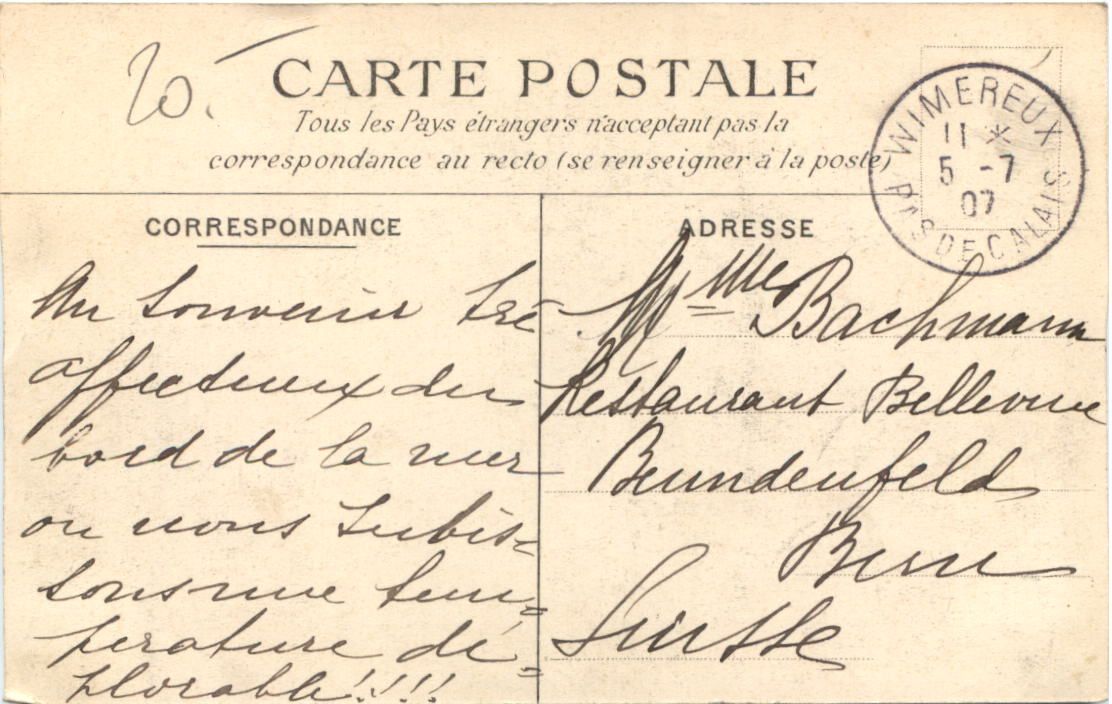 20.-
CARTE POSTALE
Tous les Pays étrangers n'acceptant pas la
correspondance au recto (se renseigner à la poste)
WIMEREUX
11 *
5 -7
07
PAS DE CALAIS
CORRESPONDANCE
Un souvenir tré
affectueux du
bord de la mer
ou nous subis-
sons une tem-
perature dé-
plorable!!!!
ADRESSE
Mme Bachmann
Restaurant Bellevue
Beundenfeld
Bern
Suisse